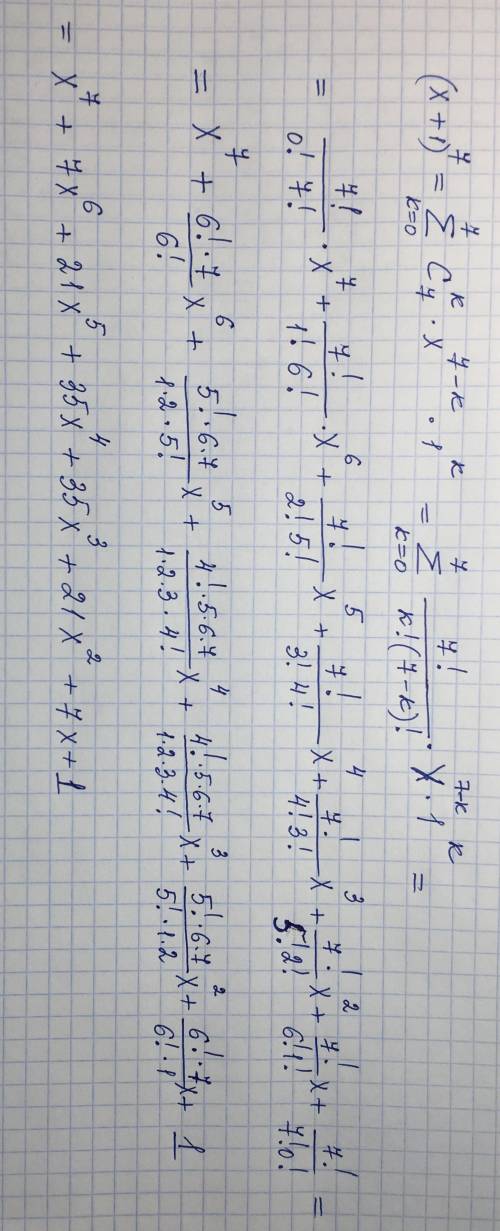 (x+1)^7 = Σ_{k=0}^{7} C_7^k · x^{7-k} · 1^k = Σ_{k=0}^{7} \frac{7!}{k!(7-k)!} · x^{7-k} · 1^k =
= \frac{7!}{0! 7!} · x^7 + \frac{7!}{1! 6!} · x^6 + \frac{7!}{2! 5!} x^5 + \frac{7!}{3! 4!} x^4 + \frac{7!}{4! 3!} x^3 + \frac{7!}{5! 2!} x^2 + \frac{7!}{6! 1!} x + \frac{7!}{7! 0!} =
= x^7 + \frac{6! · 7}{6!} x^6 + \frac{5! · 6 · 7}{1 · 2 · 5!} x^5 + \frac{4! · 5 · 6 · 7}{1 · 2 · 3 · 4!} x^4 + \frac{4! · 5 · 6 · 7}{1 · 2 · 3 · 4!} x^3 + \frac{5! · 6 · 7}{5! · 1 · 2} x^2 + \frac{6! · 7}{6! · 1} x + 1
= x^7 + 7x^6 + 21x^5 + 35x^4 + 35x^3 + 21x^2 + 7x + 1